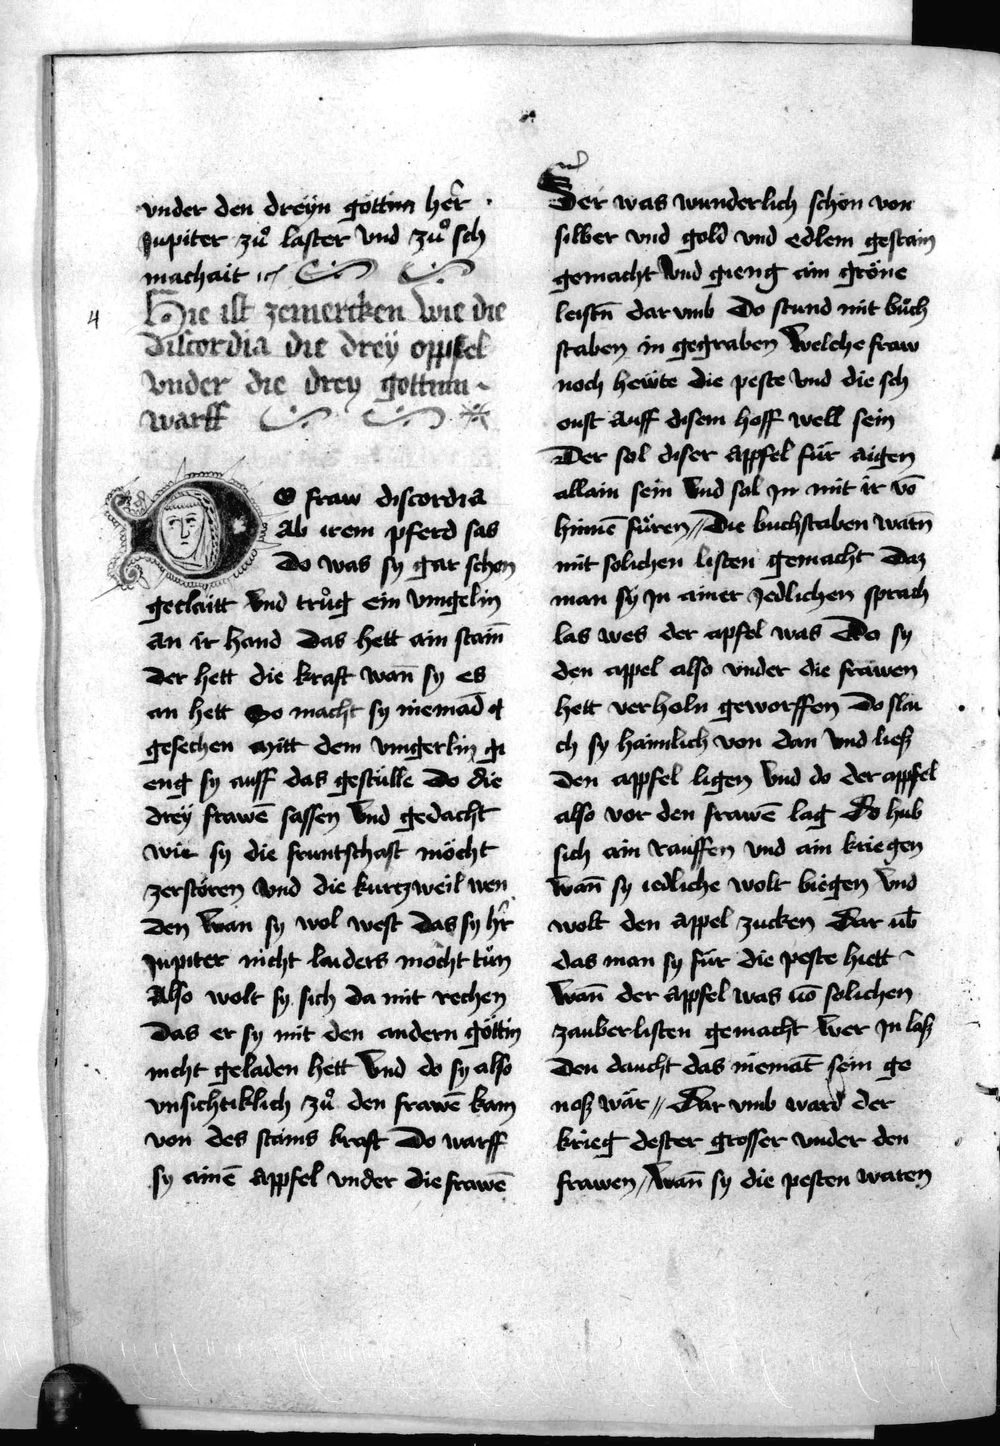 vnder den dreÿn göttin her̄
Jupiter zů laster vnd zů sch
machait
4
Hie ist zemercken wie die
discordia die dreÿ oppfel
vnder die drey gottinn
warff
DO fraw discordia
ab irem pferd sas
Do was sy gar schon
geclaitt vnd trůg ein vingelin
an ir hand Das hett ain stain̄
der hett die kraft wan̄ sy es
an hett So macht sy niemād
gesechen mitt dem vingerlin gi
eng sy auff das gestülle Do die
dreÿ frawē sassen vnd gedacht
wie sy die fruntschaft möcht
zerstören vnd die kurtzweil wen
den wan sy wol west das sy hr̄
Jupiter nicht laiders mocht tůn
Also wolt sy sich da mit rechen
Das er sy mit den andern göttin
nicht geladen hett vnd do sy also
vnsichtiklich zů den frawē kam
von des stains kraft Do warff
sy ainē appfel vnder die frawē
Der was wunderlich schön von
silber vnd gold vnd edlem gestain
gemacht vnd gieng ain gröne
leistn̄ dar vmb Do stund mit bůch
staben in gegraben welche fraw
noch hewte die peste vnd die sch
onst auff disem hoff well sein
Der sol diser appfel für aigen
allain sein vnd sol jn mit ir vō
hinnē füren // Die buchstaben warn̄
mit solichen listen gemacht Daz
man sÿ jn ainer jedlichen sprach
las wes der apfel was Da sy
den appel also vnder die frawen
hett verholn geworffen Do slai
ch sy haimlich von dan vnd ließ
den appfel ligen vnd do der appfel
also vor den frawē lag Do hub
sich ain rauffen vnd ain kriegen
wan̄ sy iedliche wolt biegen vnd
wolt den appel zucken Dar ub̄
das man sy für die peste hiett
wan̄ der appfel was vō solichen
zauberlisten gemacht wer jn laß
Den daucht das niemāt sein ge
noß wär // Dar vmb ward der
krieg dester grosser vnder den
frawen // wan̄ sy die pesten waren